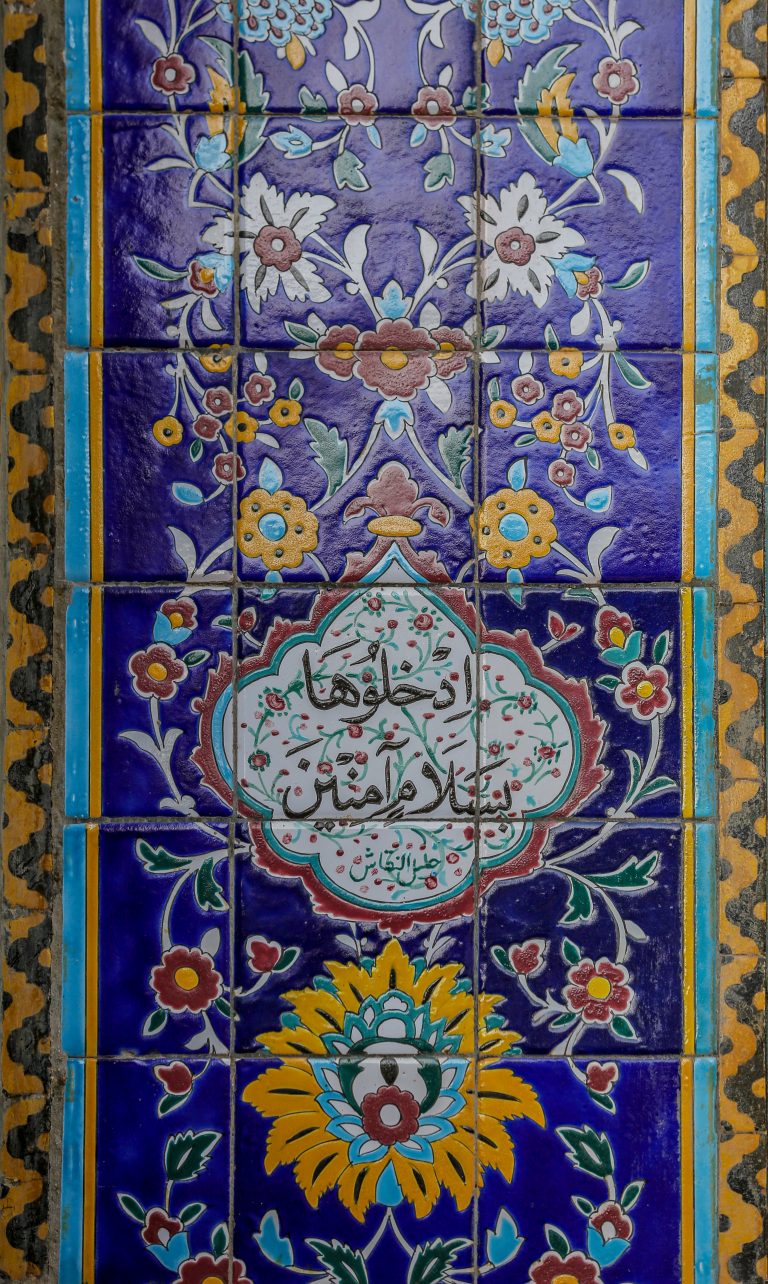 اِدْخلُوُهَا
بسَلَامٍ آمنْينَ
جلس النقاش